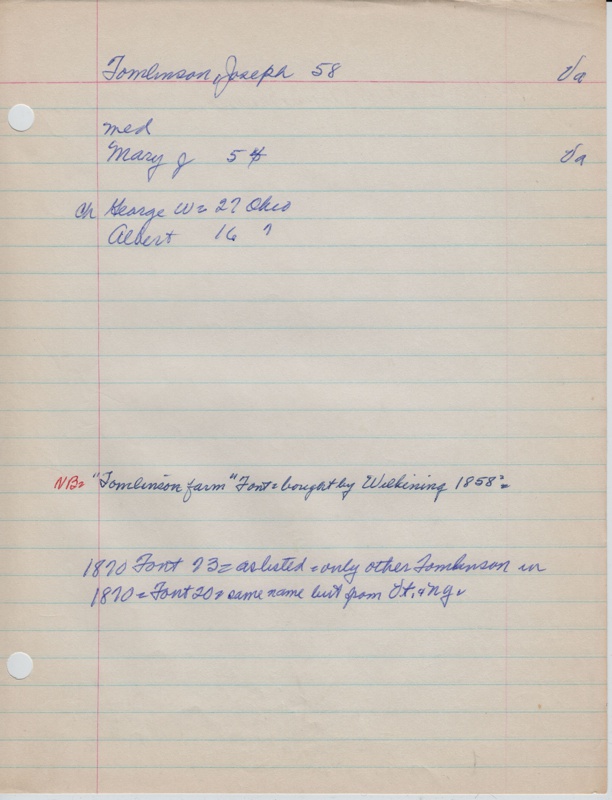 Tomlinson, Joseph 58 Va
med
Mary J 54 Va
Ch George W = 27 Ohio
Albert 16 "
NB= "Tomlinson farm" Font = bought by Wilkining 1858 =
1870 Font 73 = as listed = only other Tomlinson in
1870 = Font 20 = same name but from Vt. & Ng.